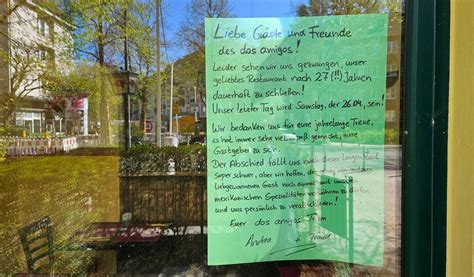 Liebe Gäste und Freunde
des dos amigos!
Leider sehen wir uns gezwungen, unser
geliebtes Restaurant nach 27(!!) Jahren
dauerhaft zu schließen!
Unser letzter Tag wird Samstag, der 26.04, sein!
Wir bedanken uns für eure jahrelange Treue,
es hat immer sehr viel Spaß gemacht, eure
Gastgeber zu sein.
Der Abschied fällt uns nach dieser langen Zeit
super schwer, aber wir hoffen, den ein oder anderen
liebgewonnenen Gast noch einmal mit unseren
mexikanischen Spezialitäten verwöhnen zu dürfen
und uns persönlich zu verabschieden!
Euer dos amigos Team